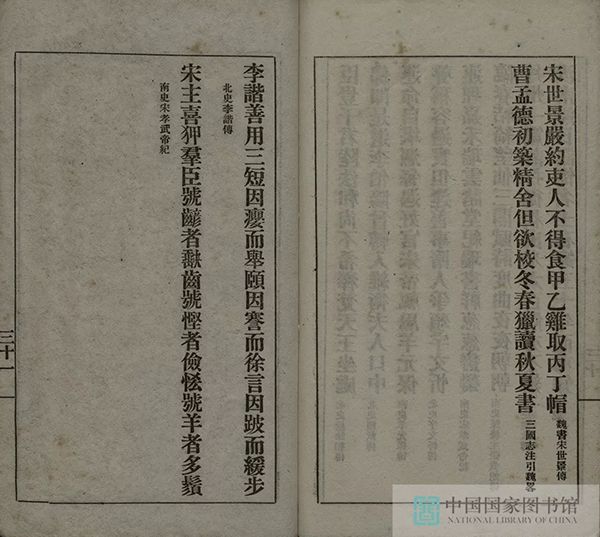 宋世景嚴約吏人不得食甲乙雞取丙丁帽 魏書宋世景傳
曹孟德初築精舍但欲校冬春獵讀秋夏書 三國志注引魏畧
李諧善用三短因癭而舉頤因謇而徐言因跛而緩步
北史李諧傳
宋主喜狎羣臣號齴者齒號慳者儉恡號羊者多鬚
南史宋孝武帝紀
三十一
中国国家图书馆
NATIONAL LIBRARY OF CHINA